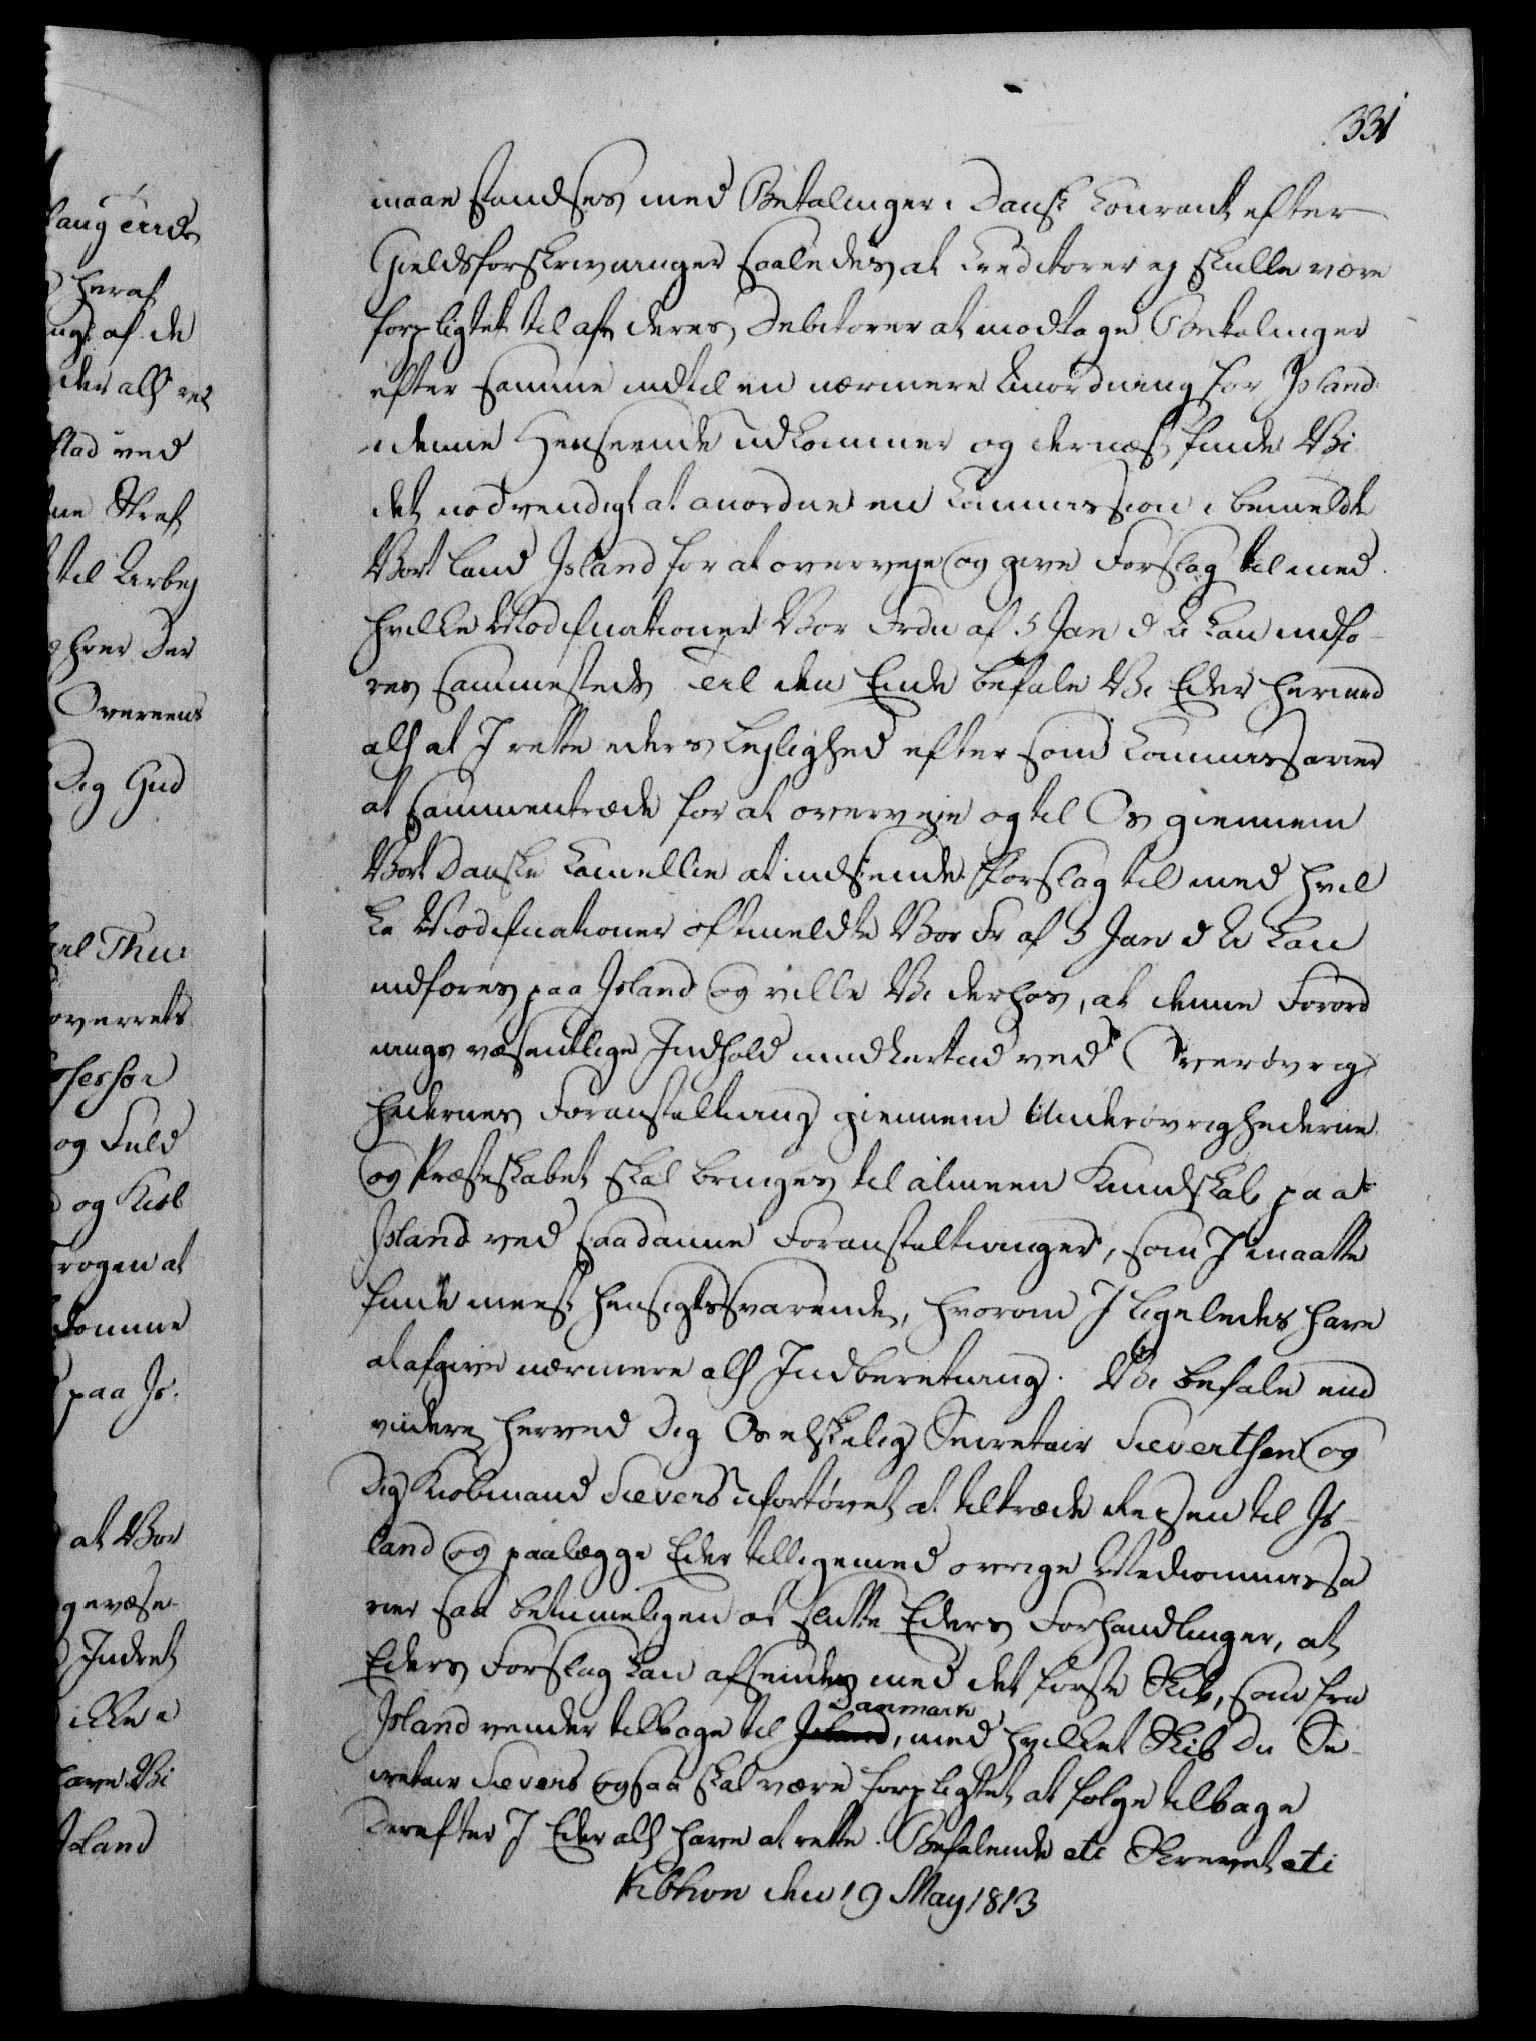 331
maae standses med Betalinger i Dansk Courant efter
Gieldsforskrivninger saaledes, at Creditorer ej skulle være
forpligtet til af deres Debitorer at modtage Betalinger
efter samme indtil en nærmere Anordning for Island
i denne Henseende udkommer og dernæst finde Vi
det nødvendigt at anordne en Commission i bemeldte
Vort Land Island for at overveje og give Forslag til med
hvilke Modificationer Vor Frdn af 5 Jan d A kan indfø-
res sammesteds Til den Ende befale Vi Eder hermed
alh at I rette eders Lejlighed efter som Commissarier
at sammentræde for at overveje og til Os giennem
Vort Danske Cancellie at indsende Forslag til med hvil
ke Modificationer oftmeldte Vor Fr af 5 Jan d A kan
indføres paa Island og ville Vi derhos, at denne Forord
nings væsentlige Indhold imidlertid ved Overøvrig
hedernes Foranstaltning giennem Underøvrighederne
og Præsteskabet skal bringes til almeen Kundskab paa
Island ved saadanne Foranstaltninger, som I maatte
finde meest hensigtssvarende, hvorom I ligeledes have
at afgive nærmere alh Indberetning. Vi befale end
videre herved Dig Os elskelig Secretair Sieverthsen og
Dig Kiøbmand Sievers ufortøvet at tiltræde Rejsen til Is-
land og paalægge Eder tilligemed øvrige Medcommissa
rier saa betimeligen at slutte Eders Forhandlinger, at
Eders Forslag kan afsendes med det første Skib, som fra
Island vender tilbage til Island Danmark, med hvilket Skib Du Se-
cretair Sievers ogsaa skal være forpligtet at følge tilbage
Derefter I Eder alh have at rette. Befalende etc Skrevet etc
Kibhvn den 19 May 1813